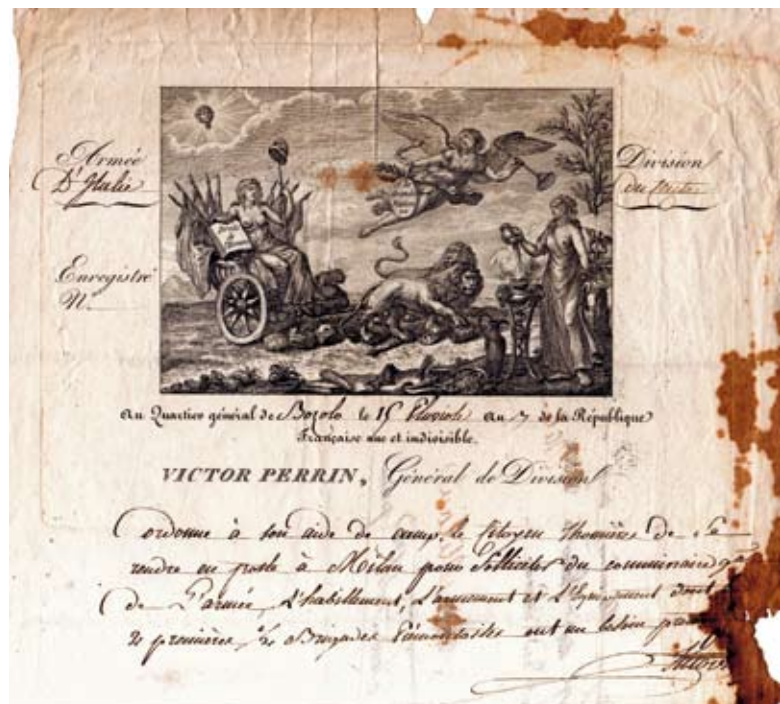 Armée
D'Italie
Division
Enregistré
N.º
Au Quartier général de Bozolo le 15 Pluviose an 7 de la République
Française une et indivisible.
VICTOR PERRIN, Général de Division
ordonne à son aide de camp, le Citoyen Thomières de se
rendre en poste à Milan pour Solliciter du commissaire
de l'armée, L'habillement, L'armement et L'Equipement dont
les premières Brigades Piémontaises ont un besoin
Victor